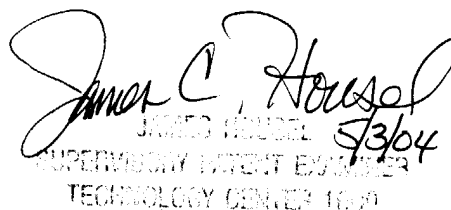 James C. Housel
JAMES HOUSEL 5/3/04
SUPERVISORY PATENT EXAMINER
TECHNOLOGY CENTER 1600